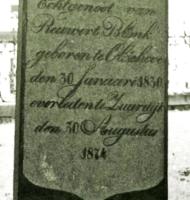 Echtgenoot van
Reuwert Blenk
geboren te Oldehove
den 30 Januari 1830
overleden te Zuurdijk
den 30 Augustus
1874